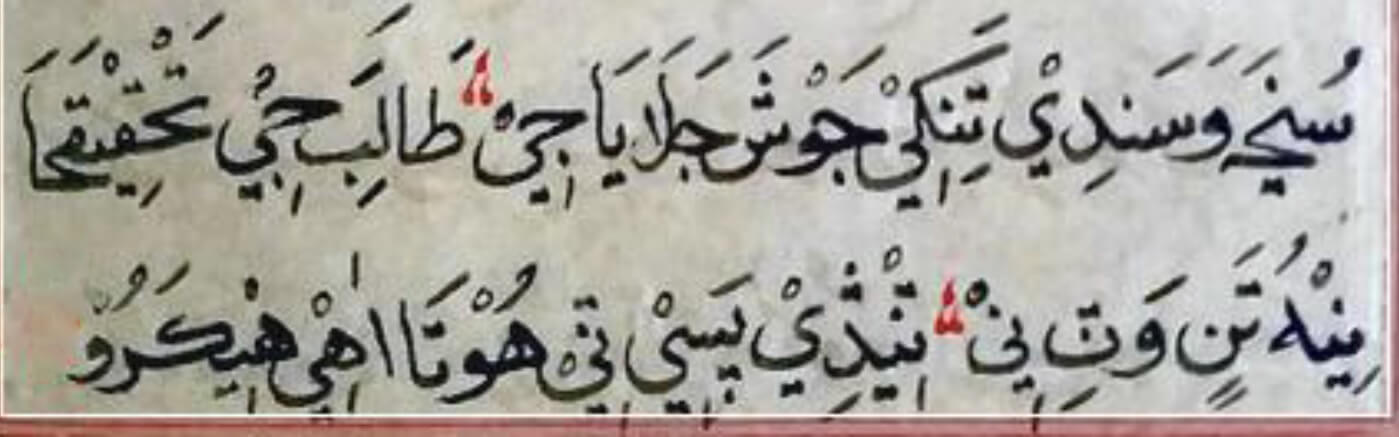 سُنجَي وَسَندِيْ تَنِکِيْ جَوْشَ جَلَا يَا جِيْ؞ طَالِبَ جِيْ تَحْقِيْقَجَا
نِينْهُ تَنٍ وَتِ نِيْ؞ تِيْذِيْ پَسِيْ تِيْ هُوْتَا اٰهِيْ هِيْکَرُوْ